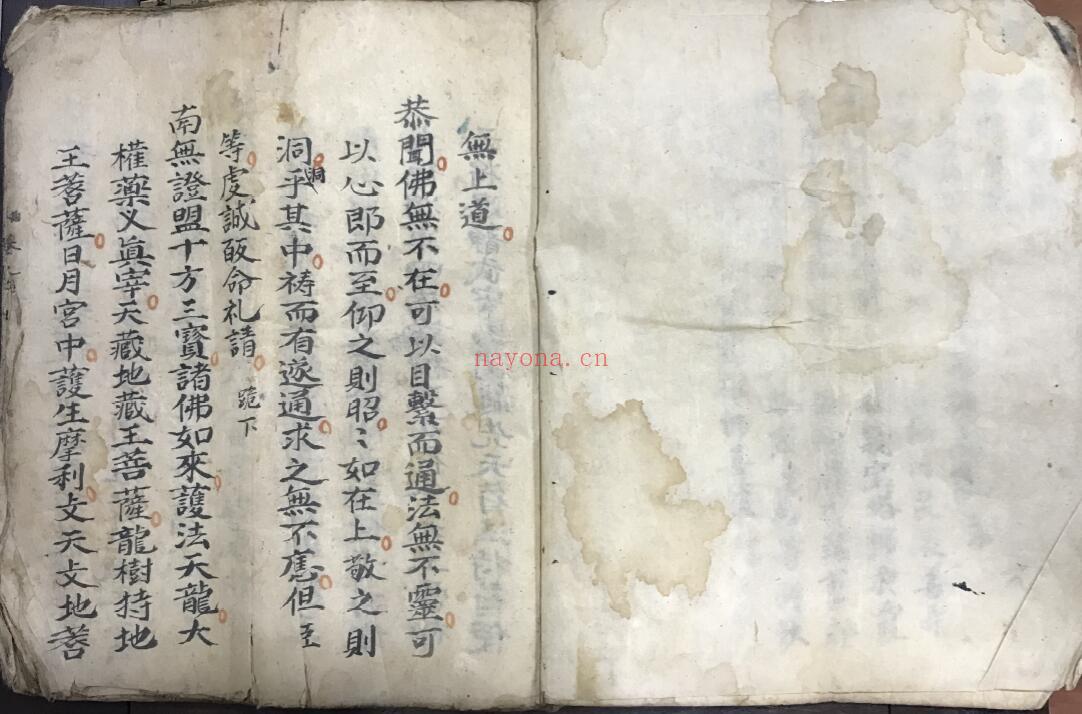 無上道
恭聞佛無不在可以目繫而通法無不靈可
以心郎而至仰之則昭〻如在上敬之則
洞洞乎其中祷而有遂通求之無不應但至
等虔誠皈命礼請 跪下
南無證盟十方三寳諸佛如來護法天龍大
權藥义真宰天藏地藏王菩薩龍樹持地
王菩薩日月宮中護生摩利支天支地菩
nayona.cn